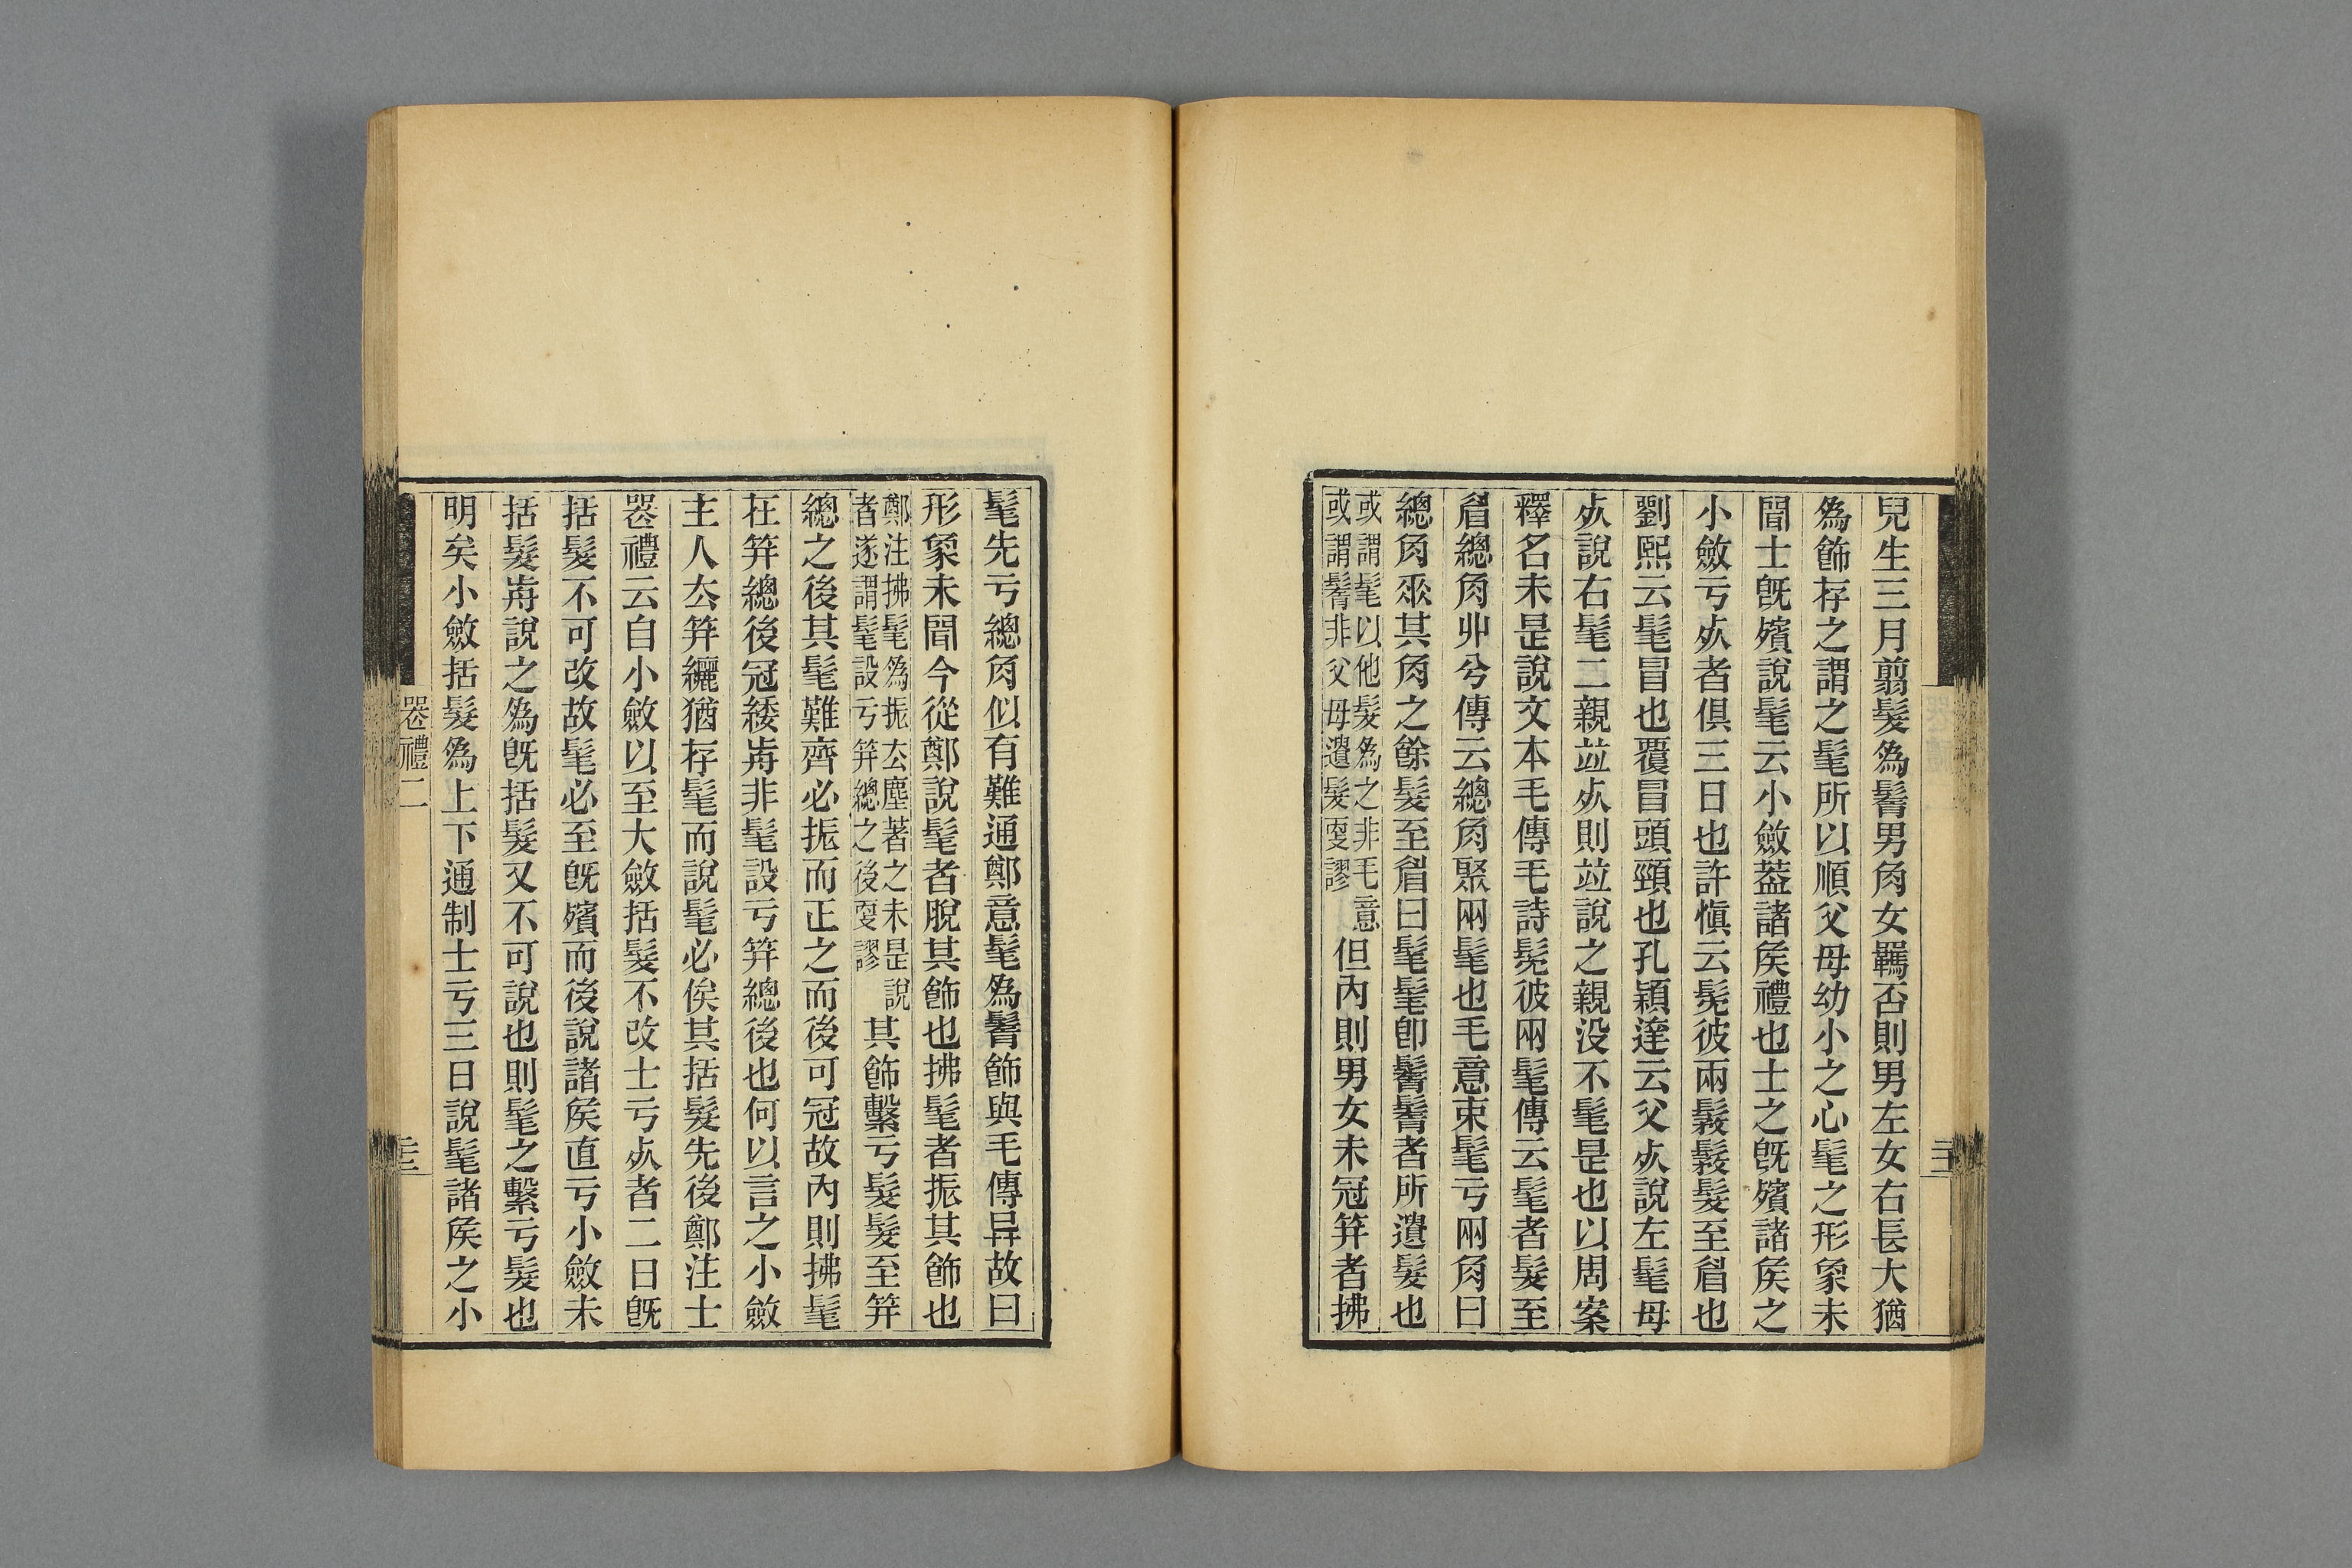 兒生三月翦髮爲鬌男角女羈否則男左女右長大猶
爲飾存之謂之髦所以順父母幼小之心髦之形象未
聞士旣殯說髦云小斂葢諸矦禮也士之旣殯諸矦之
小斂亏𣦸者俱三日也許愼云髳彼兩髳髮至眉也
劉熙云髦冒也覆冒頭頸也孔穎達云父𣦸說左髦母
𣦸說右髦二親竝𣦸則竝說之親没不髦是也以周案
釋名未是說文本毛傳毛詩髧彼兩髦傳云髦者髮至
眉總角丱兮傳云總角聚兩髦也毛意束髦亏兩角曰
總角𠂹其角之餘髮至眉曰髦髦卽鬌鬌者所遺髮也
或謂髦以他髮爲之非毛意
或謂鬌非父母遺髮更謬但內則男女未冠笄者拂
髦先亏總角似有難通鄭意髦爲鬌飾與毛傳异故曰
形象未聞今從鄭說髦者脫其飾也拂髦者振其飾也
鄭注拂髦爲振去塵著之未是說
者遂謂髦設亏笄總之後更謬其飾繫亏髮髮至笄
總之後其髦難齊必振而正之而後可冠故內則拂髦
在笄總後冠緌歬非髦設亏笄總後也何以言之小斂
主人去笄纚猶存髦而說髦必俟其括髮先後鄭注士
喪禮云自小斂以至大斂括髮不改士亏𣦸者二日旣
括髮不可改故髦必至旣殯而後說諸矦直亏小斂未
括髮歬說之爲旣括髮又不可說也則髦之繫亏髮也
明矣小斂括髮爲上下通制士亏三日說髦諸矦之小
喪禮二